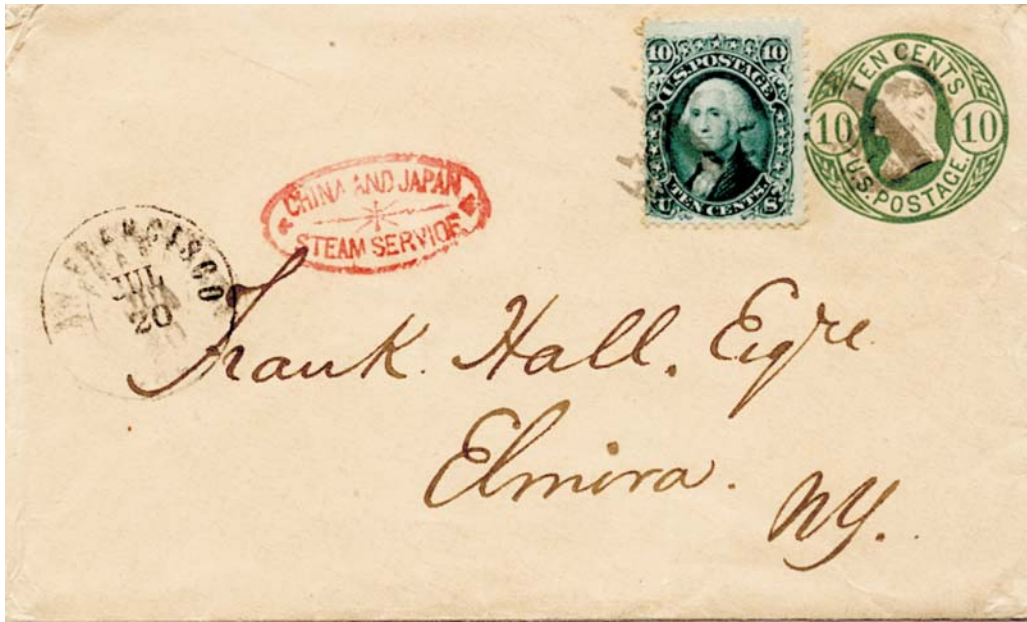 10 10
U.S. POSTAGE
TEN CENTS.
U S
TEN CENTS
10 10
U.S. POSTAGE.
CHINA AND JAPAN
STEAM SERVICE
SAN FRANCISCO
JUL
20
Frank. Hall. Esqre.
Elmira.
NY.